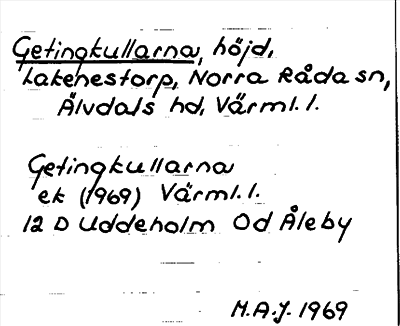 Getingkullarna, höjd,
Lakenestorp, Norra Råda sn,
Älvdals hd, Värml. l.
Getingkullarna
ek (1969) Värml. l.
12 D Uddeholm Od Åleby
M.A.J. 1969